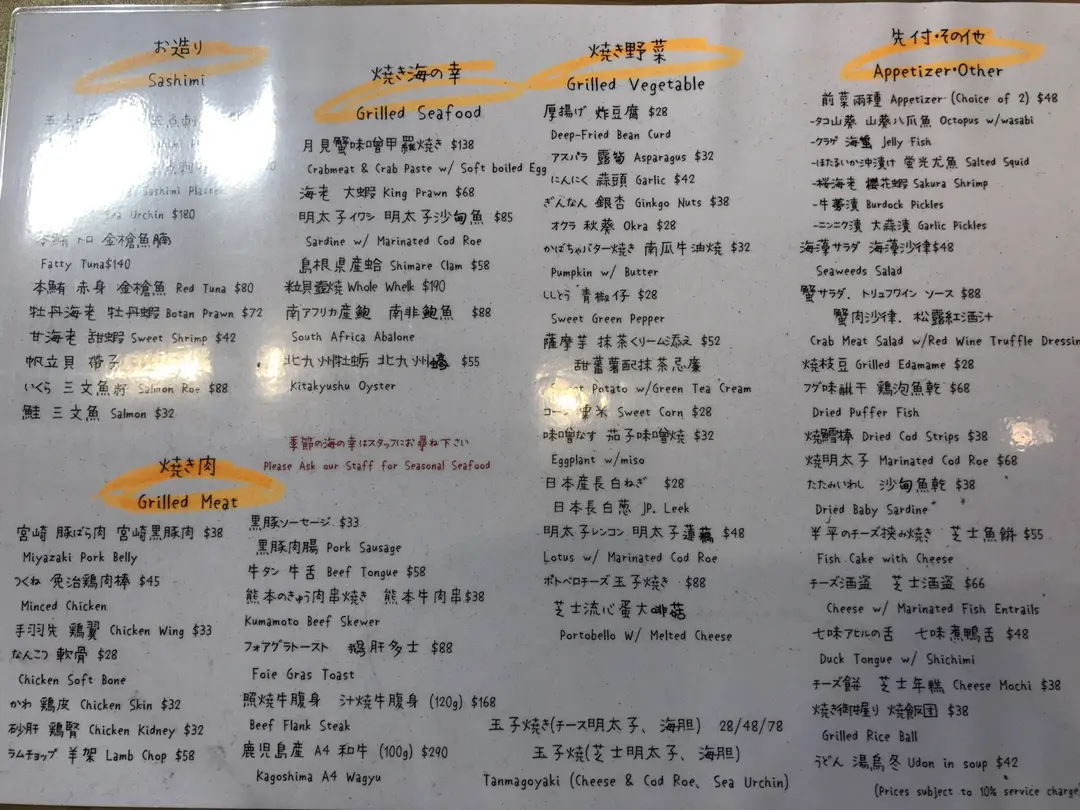 お造り
Sashimi
Sashimi
Urchin $180
金槍魚腩
Fatty Tuna$140
本鮪 赤身 金槍魚 Red Tuna $80
牡丹海老 牡丹蝦 Botan Prawn $72
甘海老 甜蝦 Sweet Shrimp $42
帆立貝 帶子
いくら 三文魚籽 Salmon Roe $88
鮭 三文魚 Salmon $32
焼き海の幸
Grilled Seafood
月見蟹味噌甲羅焼き $138
Crabmeat & Crab Paste w/ Soft boiled Egg
海老 大蝦 King Prawn $68
明太子イワシ 明太子沙甸魚 $85
Sardine w/ Marinated Cod Roe
島根県産蛤 Shimare Clam $58
粒貝壺焼 Whole Whelk $190
南アフリカ産鮑 南非鮑魚 $88
South Africa Abalone
北九州牡蛎 北九州蠔 $55
Kitakyushu Oyster
季節の海の幸はスタッフにお尋ね下さい
Please Ask our Staff for Seasonal Seafood
焼き肉
Grilled Meat
宮崎 豚ばら肉 宮崎黒豚肉 $38
Miyazaki Pork Belly
つくね 免治鶏肉棒 $45
Minced Chicken
手羽先 鶏翼 Chicken Wing $33
なんこつ 軟骨 $28
Chicken Soft Bone
かわ 鶏皮 Chicken Skin $32
砂肝 鶏腎 Chicken Kidney $32
ラムチョップ 羊架 Lamb Chop $58
黒豚ソーセージ $33
黒豚肉腸 Pork Sausage
牛タン 牛舌 Beef Tongue $58
熊本のぎゅう肉串焼き 熊本牛肉串$38
Kumamoto Beef Skewer
フォアグラトースト 鵝肝多士 $88
Foie Gras Toast
照焼牛腹身 汁焼牛腹身 (120g) $168
Beef Flank Steak
鹿児島産 A4 和牛 (100g) $290
Kagoshima A4 Wagyu
焼き野菜
Grilled Vegetable
厚揚げ 炸豆腐 $28
Deep-Fried Bean Curd
アスパラ 露筍 Asparagus $32
にんにく 蒜頭 Garlic $42
ぎんなん 銀杏 Ginkgo Nuts $38
オクラ 秋葵 Okra $28
かぼちゃバター焼き 南瓜牛油焼 $32
Pumpkin w/ Butter
ししとう 青椒仔 $28
Sweet Green Pepper
薩摩芋 抹茶くリーム添え $52
甜蕃薯配抹茶忌廉
Potato w/Green Tea Cream
コーン 粟米 Sweet Corn $28
味噌なす 茄子味噌焼 $32
Eggplant w/miso
日本産長白ねぎ $28
日本長白葱 JP. Leek
明太子レンコン 明太子蓮藕 $48
Lotus w/ Marinated Cod Roe
ポトベロチーズ玉子焼き $88
芝士流心蛋大啡菇
Portobello W/ Melted Cheese
玉子焼き(チース明太子、海胆) 28/48/78
玉子焼(芝士明太子、海胆)
Tanmagoyaki (Cheese & Cod Roe、Sea Urchin)
先付・その他
Appetizer・Other
前菜兩種 Appetizer (Choice of 2) $48
-タコ山葵 山葵八爪魚 Octopus w/wasabi
-クラゲ 海蜇 Jelly Fish
-ほたるいか沖漬け 螢光尤魚 Salted Squid
-桜海老 櫻花蝦 Sakura Shrimp
-牛蒡漬 Burdock Pickles
-ニンニク漬 大蒜漬 Garlic Pickles
海藻サラダ 海藻沙律$48
Seaweeds Salad
蟹サラダ. トリュフワイン ソース $88
蟹肉沙律. 松露紅酒汁
Crab Meat Salad w/Red Wine Truffle Dressin
焼枝豆 Grilled Edamame $28
フグ味醂干 鶏泡魚乾 $68
Dried Puffer Fish
焼鱈棒 Dried Cod Strips $38
焼明太子 Marinated Cod Roe $68
たたみいわし 沙甸魚乾 $38
Dried Baby Sardine
半平のチーズ挟み焼き 芝士魚餅 $55
Fish Cake with Cheese
チーズ酒盗 芝士酒盗 $66
Cheese w/ Marinated Fish Entrails
七味アヒルの舌 七味煮鴨舌 $48
Duck Tongue w/ Shichimi
チーズ餅 芝士年糕 Cheese Mochi $38
焼き御握り 焼飯団 $38
Grilled Rice Ball
うどん 湯烏冬 Udon in soup $42
(Prices subject to 10% service charge